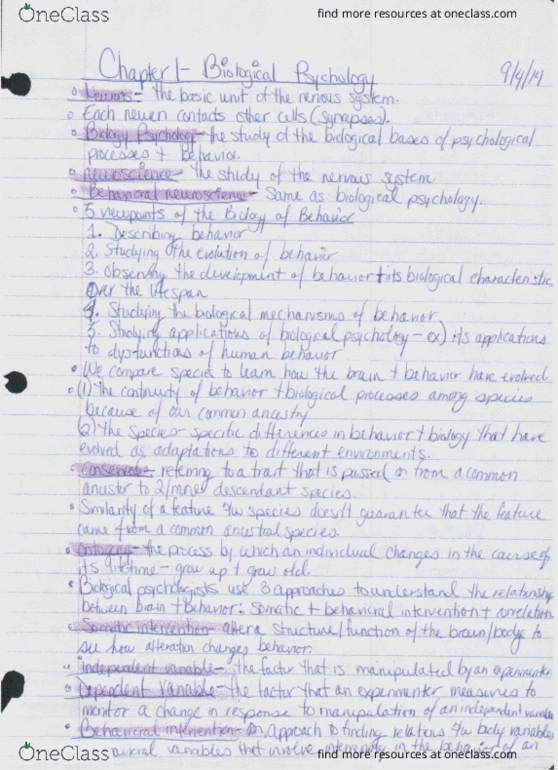 OneClass
find more resources at oneclass.com
Chapter 1- Biological Psychology
9/4/14
Neurons- the basic unit of the nervous system.
Each neuron contacts other cells (synapses).
Biology Psychology- the study of the biological bases of psychological
processes + behavior.
neuroscience- the study of the nervous system.
Behavioral neuroscience- Same as biological psychology.
5 viewpoints of the Biology of Behavior
1. Describing behavior
2. Studying the evolution of behavior
3. Observing the development of behavior + its biological characteristic
over the lifespan
4. Studying the biological mechanisms of behavior.
5. Studying applications of biological psychology- ex) its applications
to dysfunctions of human behavior
We compare species to learn how the brain + behavior have evolved.
(1) The continuity of behavior + biological processes among species
because of our common ancestry
(2) The species-specific differences in behavior + biology that have
evolved as adaptations to different environments.
Conserved- referring to a trait that is passed on from a common
ancestor to 2/more descendant species.
Similarity of a feature b/w species doesn't guarantee that the feature
came from a common ancestral species.
ontogeny- the process by which an individual changes in the course of
its lifetime- grow up + grow old.
Biological psychologists use 3 approaches to understand the relationship
between brain + behavior: Somatic + behavioral intervention + correlation.
Somatic intervention- alter a structure/function of the brain/body to
see how alteration changes behavior.
independent variable- the factor that is manipulated by an experimenter.
Dependent variable- the factor that an experimenter measures to
monitor a change in response to manipulation of an independent variable
Behavioral intervention- An approach to finding relations b/w body variables
variables that involve intervening in the behavior of an
OneClass
find more resources at oneclass.com